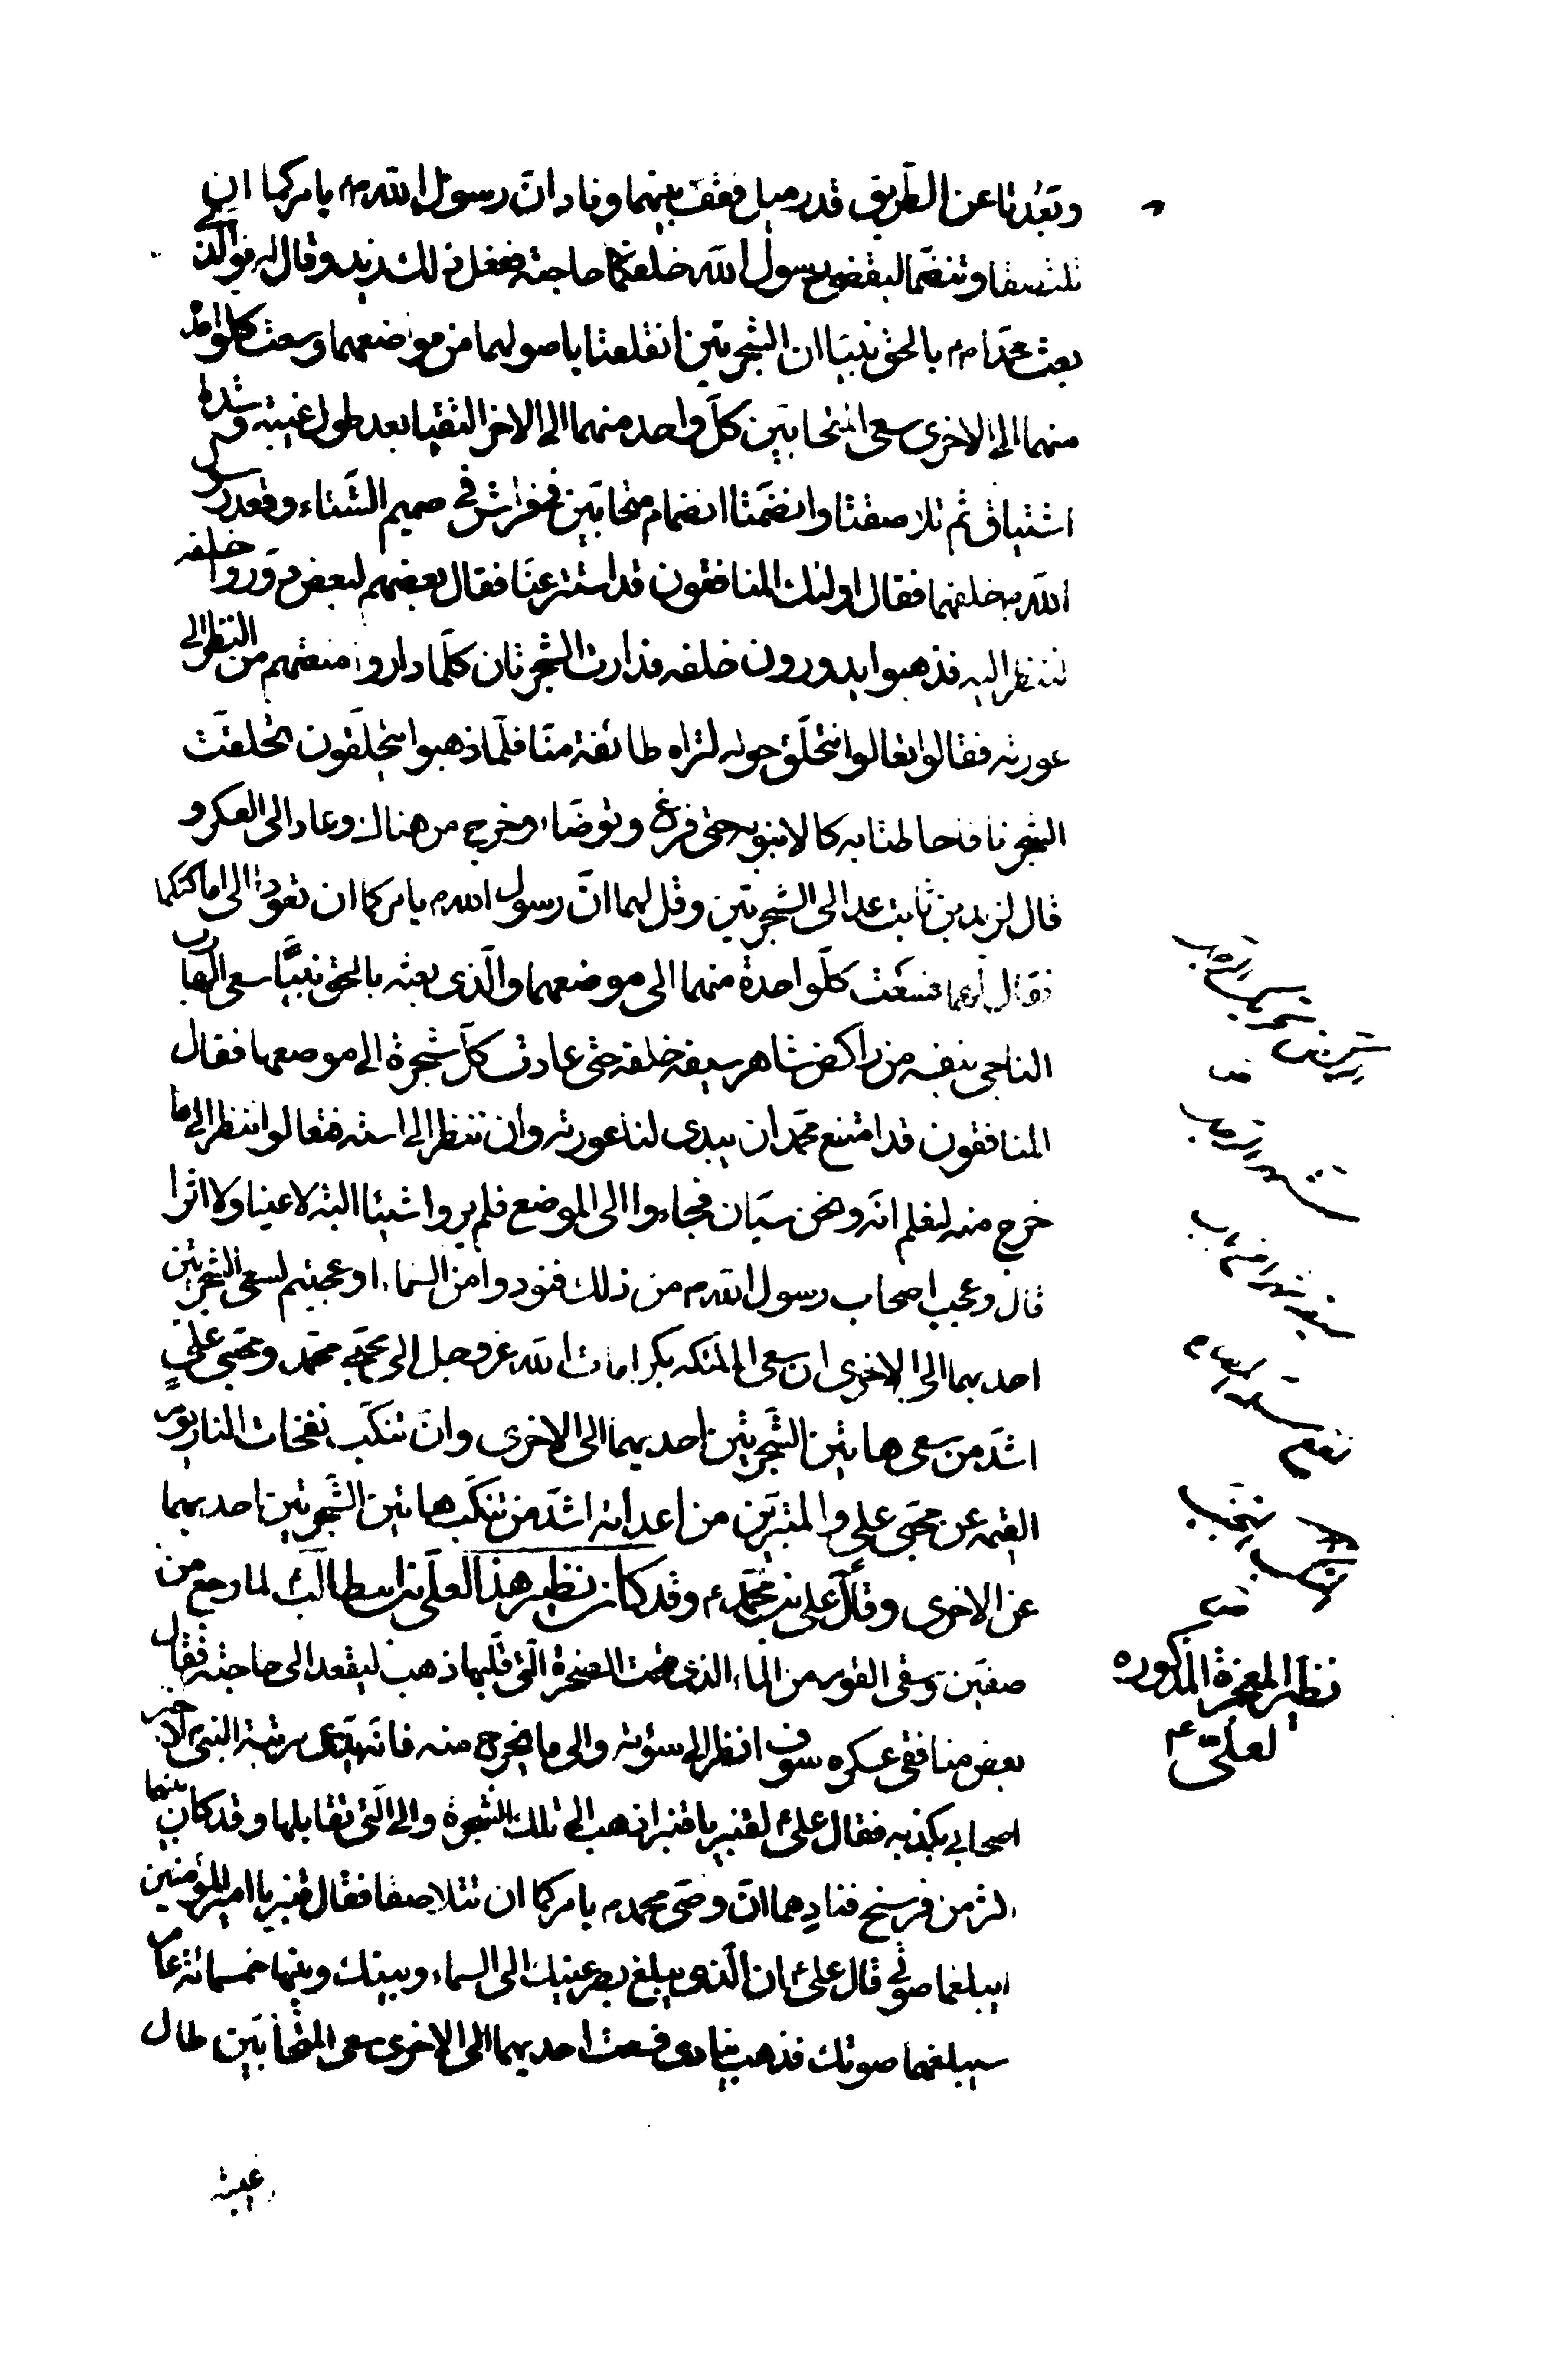 وتعدتا عن الطريق قدر ميل فقف بينهما وناد ان رسول الله ص يامركما ان
تلتصقا وتنضما ليقضى رسول الله خلفكما حاجته ففعل ذلك زيد وقال له فو الذى
بعث محمدا ص بالحق نبيا ان الشجرتين انقلعتا باصولهما من مواضعهما وسعت كل واحدة
منهما الى الاخرى سعى المتحابين كل واحد منهما الى الاخر التقيا بعد طول غيبة وشدة
اشتياق ثم تلاصقتا وانضمتا انضمام متحابين فى فراش فى صميم الشتاء وقعد رسول
الله ص خلفهما فقال اولئك المنافقون قد استتر عنا فقال بعضهم لبعض دوروا خلفه
لننظر اليه فذهبوا يدورون خلفه فدارت الشجرتان كلما داروا منعتهم من النظر الى
عورته فقالوا تعالوا نتحلق حوله لتراه طائفة منا فلما ذهبوا يتحلقون تحلقت
الشجرتا فاحاطتا به كالانبوبة حتى فرغ وتوضاء وخرج من هناك وعاد الى العسكر و
قال لزيد بن ثابت عد الى الشجرتين وقل لهما ان رسول الله ص يامركما ان تعودا الى اماكنكما
فقال لهما فسعت كل واحدة منهما الى موضعهما والذى بعثه بالحق نبيا سعى الهارب
الناجى بنفسه من راكض شاهر سيفه خلفه حتى عادت كل شجرة الى موضعها فقال
المنافقون قد امتنع محمد ان يبدى لنا عورته وان ننظر الى استه فتعالوا ننظر الى ما
خرج منه لنعلم انه ونحن سيان فجاءوا الى الموضع فلم يروا شيئا البتة لا عينا ولا اثرا
قال وعجب اصحاب رسول الله ص من ذلك فنودوا من السماء اوعجبتم لسعى الشجرتين
احديهما الى الاخرى ان سعى الملئكة بكرامات الله عز وجل الى محبى محمد ومحبى على
اشد من سعى هاتين الشجرتين احديهما الى الاخرى وان تنكب نفحات النار يوم
القيمة عن محبى على والمتبرين من اعدائه اشد من تنكب هاتين الشجرتين احديهما
عن الاخرى وقال على بن محمد ع وقد كان نظير هذا لعلى بن ابيطالب لما رجع من
صفين وسقى القوم من الماء الذى تحت الصخرة التى قلبها ذهب ليقعد الى حاجته فقال
بعض منافقى عسكره سوف انظر الى سوئته والى ما يخرج منه فانه يدعى مرتبة النبى لاخبر
اصحابى بكذبه فقال على ع لقنبر يا قنبر اذهب الى تلك الشجرة والى التى تقابلها وقد كان بينهما
اكثر من فرسخ فنادهما ان وصى محمد ص يامركما ان تتلاصقا فقال قنبر يا امير المؤمنين
ايبلغهما صوتى قال على ع ان الذى يبلغ بصر عينيك الى السماء وبينك وبينها خمسمائة عام
سيبلغهما صوتك فذهب ينادى فسعت احديهما الى الاخرى سعى المتحابين طال
نظير المعجزة المذكورة
لعلى ع
غيبة